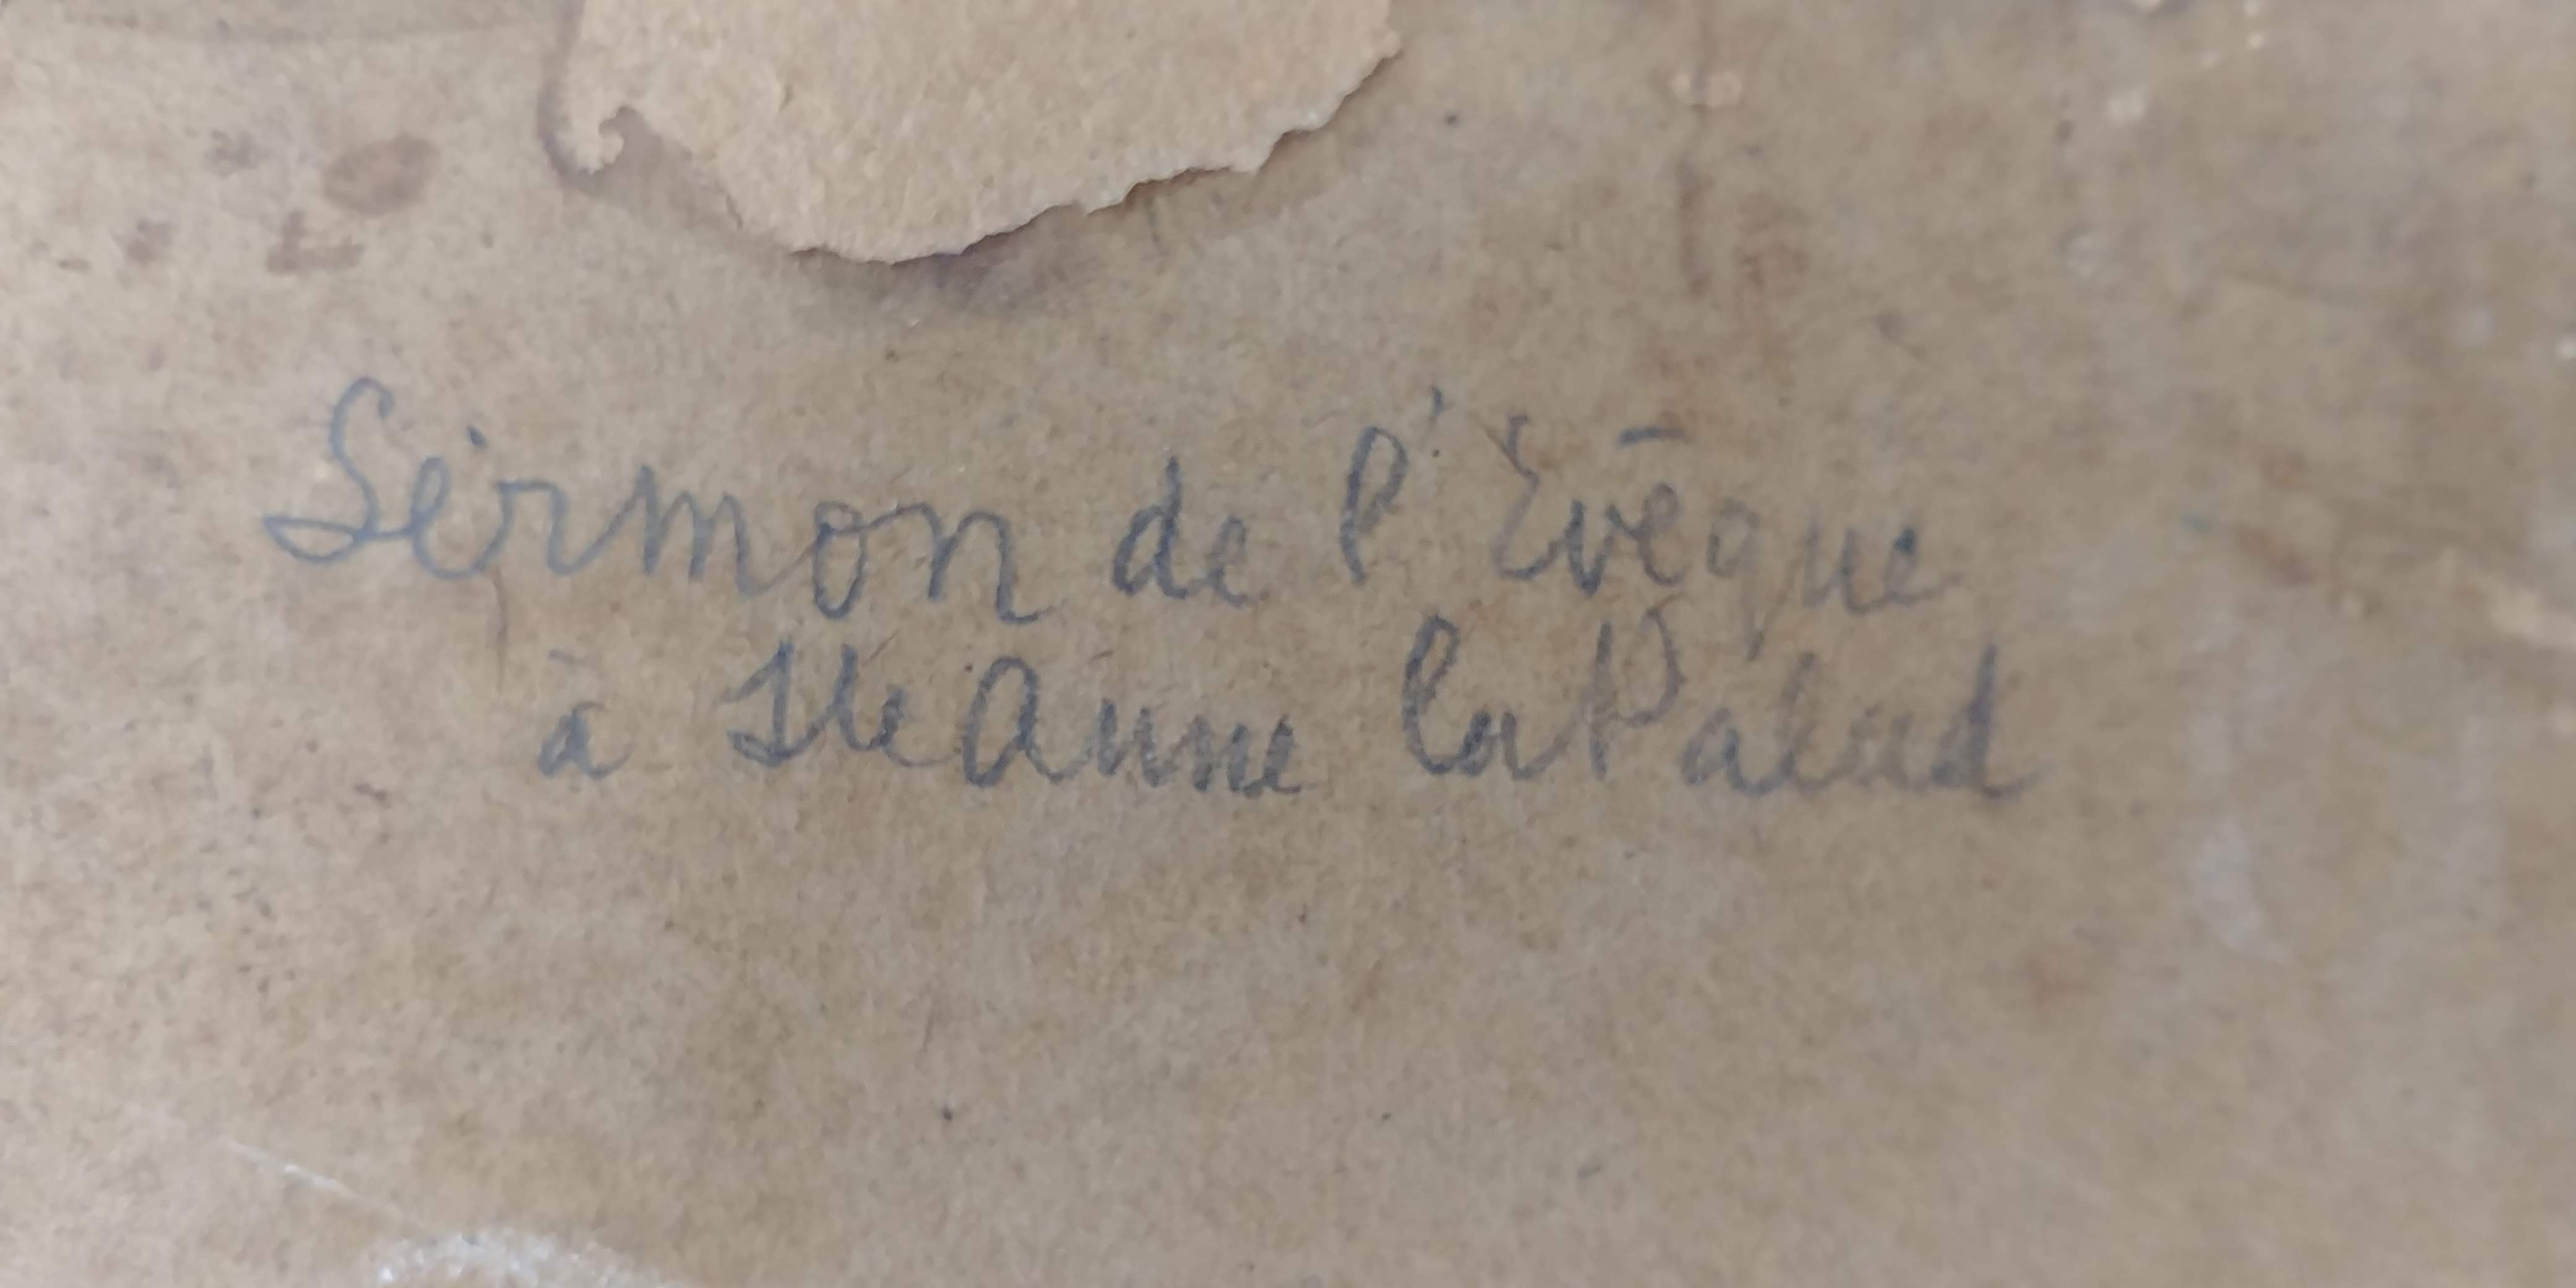 Sermon de l'Evêque
à Ste Anne la Palud